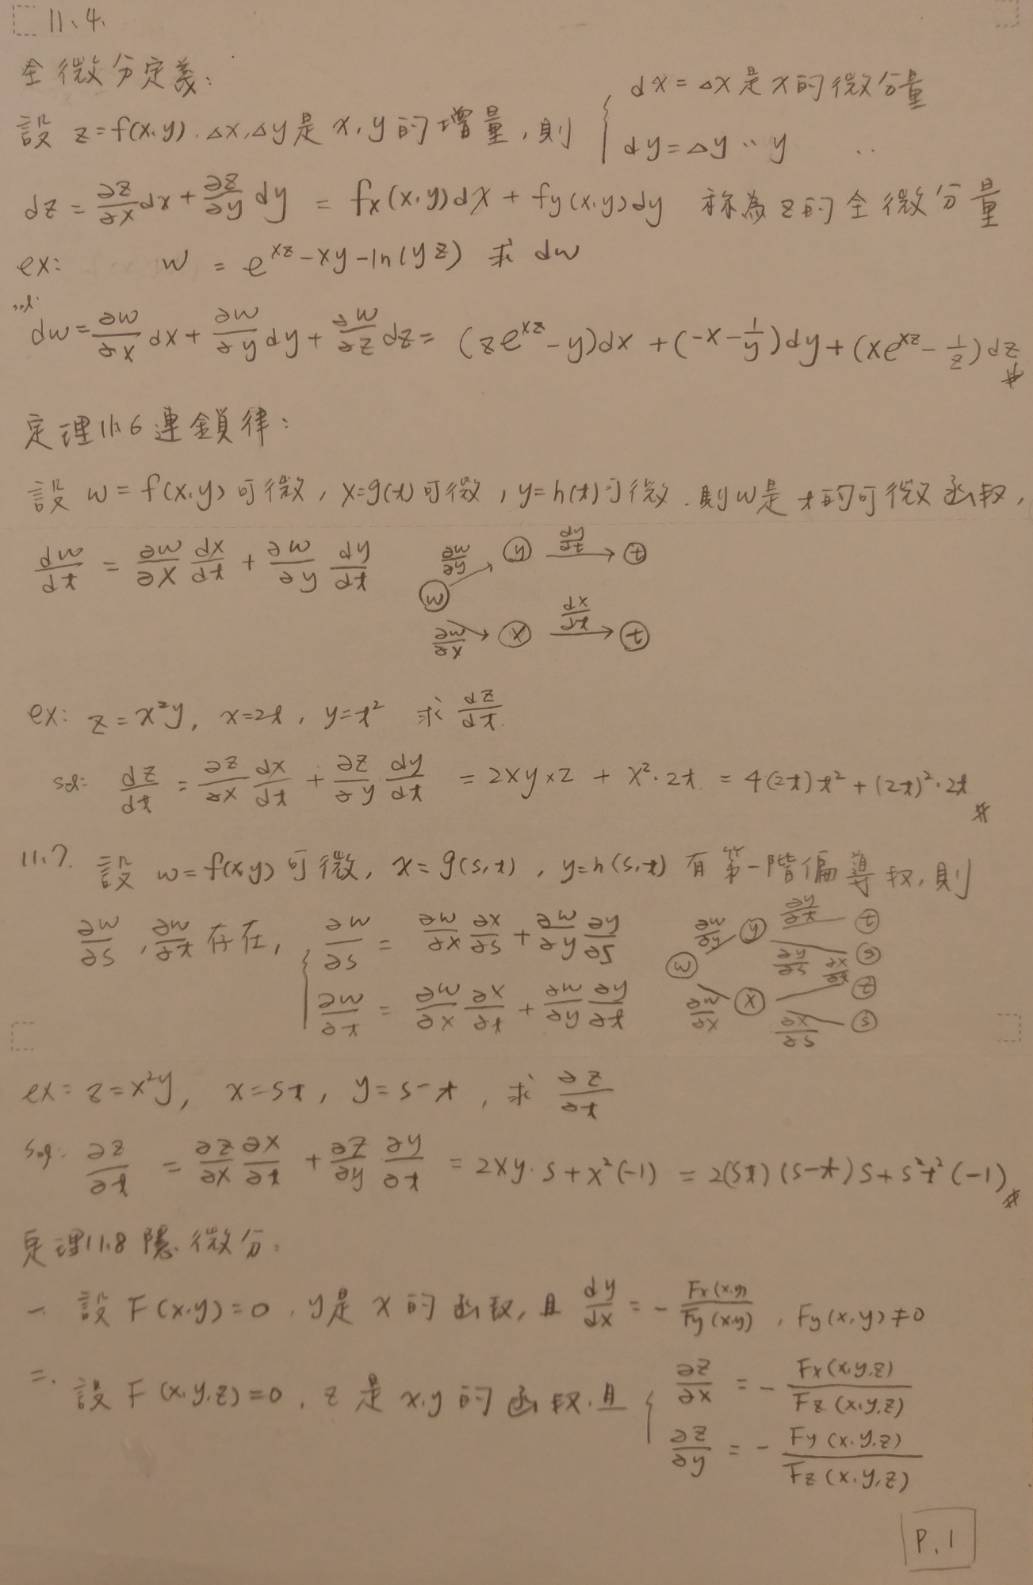 11.4.
全微分定義:
設 z=f(x,y). Δx,Δy是 x,y 的增量, 則 { dx=Δx是x的微分量
dy=Δy 〃 y 〃
dz = ∂z/∂x dx + ∂z/∂y dy = fx(x,y)dx + fy(x,y)dy 称為 z的全微分量
ex: w = e^{xz} - xy - ln(yz) 求 dw
sol: dw = ∂w/∂x dx + ∂w/∂y dy + ∂w/∂z dz = (ze^{xz} - y)dx + (-x - 1/y)dy + (xe^{xz} - 1/z)dz #
定理11.6 連鎖律:
設 w = f(x,y) 可微, x=g(t)可微, y=h(t)可微. 則w是 t的可微函数,
dw/dt = ∂w/∂x dx/dt + ∂w/∂y dy/dt
∂w/∂y y dy/dt t
w
∂w/∂x x dx/dt t
ex: z = x²y, x=2t, y=t² 求 dz/dt
sol: dz/dt = ∂z/∂x dx/dt + ∂z/∂y dy/dt = 2xy×2 + x²·2t = 4(2t)t² + (2t)²·2t #
11.7. 設 w=f(x,y) 可微, x=g(s,t), y=h(s,t) 有第一階偏導数, 則
∂w/∂s, ∂w/∂t 存在, { ∂w/∂s = ∂w/∂x ∂x/∂s + ∂w/∂y ∂y/∂s
∂w/∂t = ∂w/∂x ∂x/∂t + ∂w/∂y ∂y/∂t
∂w/∂y y ∂y/∂t t
w ∂y/∂s s
∂x/∂t t
∂w/∂x x ∂x/∂s s
ex: z=x²y, x=st, y=s-t, 求 ∂z/∂t
sol: ∂z/∂t = ∂z/∂x ∂x/∂t + ∂z/∂y ∂y/∂t = 2xy·s + x²(-1) = 2(st)(s-t)s + s²t²(-1) #
定理11.8 隱微分:
一. 設 F(x,y)=0, y是 x 的函数, 且 dy/dx = - Fx(x,y)/Fy(x,y), Fy(x,y)≠0
二. 設 F(x,y,z)=0, z 是 x,y 的函数, 且 { ∂z/∂x = - Fx(x,y,z)/Fz(x,y,z)
∂z/∂y = - Fy(x,y,z)/Fz(x,y,z)
P.1